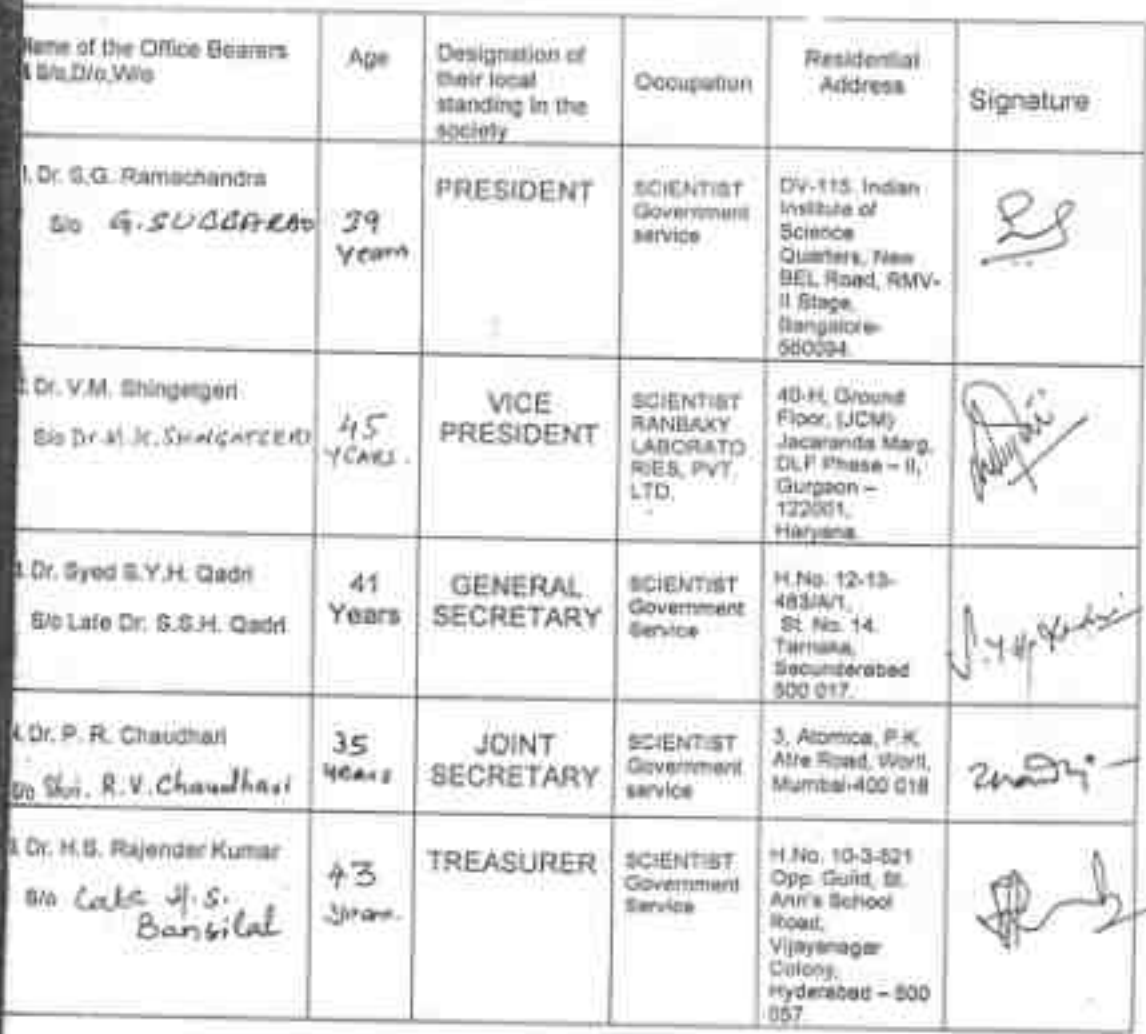 Name of the Office Bearers
& S/o,D/o,W/o
Age
Designation of
their local
standing in the
society
Occupation
Residential
Address
Signature
1. Dr. S.G. Ramachandra
S/o G. SUBBARAO
39
Years
PRESIDENT
SCIENTIST
Government
service
DV-115, Indian
Institute of
Science
Quarters, New
BEL Road, RMV-
II Stage,
Bangalore-
560094.
2. Dr. V.M. Shingatgeri
S/o Dr. M.K. SHINGATGERI
45
YEARS.
VICE
PRESIDENT
SCIENTIST
RANBAXY
LABORATO
RIES, PVT.
LTD.
40-H, Ground
Floor, (JCM)
Jacaranda Marg,
DLF Phase – II,
Gurgaon –
122001,
Haryana.
3. Dr. Syed S.Y.H. Qadri
S/o Late Dr. S.S.H. Qadri
41
Years
GENERAL
SECRETARY
SCIENTIST
Government
Service
H.No. 12-13-
483/A/1,
St. No. 14.
Tarnaka,
Secunderabad
500 017.
S.Y.H. Qadri
4. Dr. P. R. Chaudhari
S/o Shri. R.V. Chaudhari
35
years
JOINT
SECRETARY
SCIENTIST
Government
service
3, Atomica, P.K.
Atre Road, Worli,
Mumbai-400 018
5. Dr. H.S. Rajender Kumar
S/o Late H.S.
Bansilal
43
years.
TREASURER
SCIENTIST
Government
Service
H.No. 10-3-521
Opp. Guild, St.
Ann's School
Road,
Vijayanagar
Colony,
Hyderabad – 500
057.